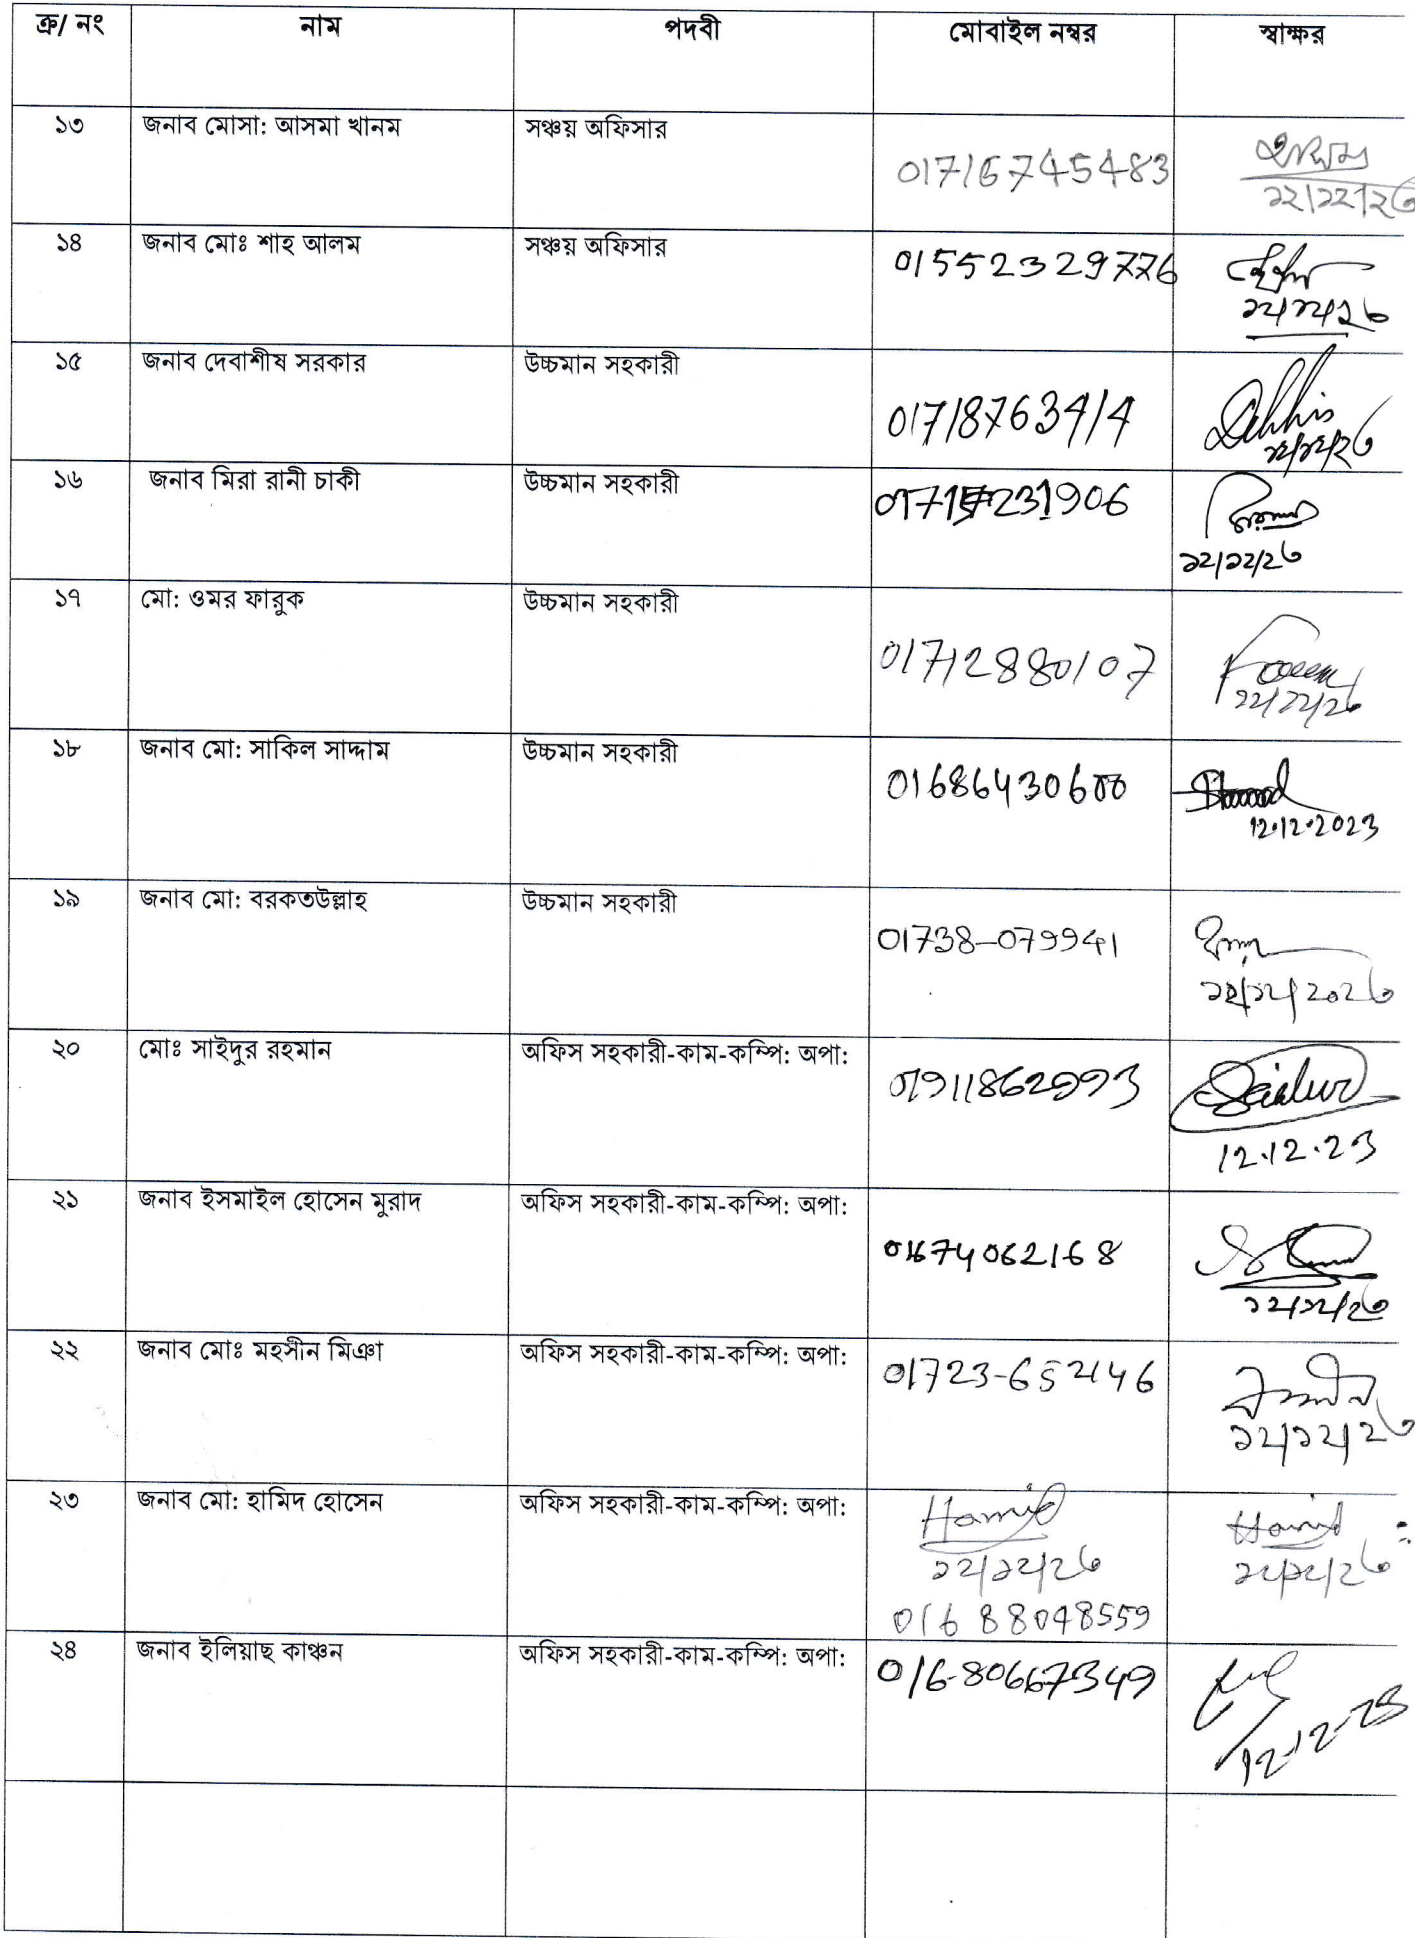 ক্র/ নং নাম পদবী মোবাইল নম্বর স্বাক্ষর
১৩ জনাব মোসা: আসমা খানম সঞ্চয় অফিসার
01716745483
১২/১২/২৩
১৪ জনাব মোঃ শাহ আলম সঞ্চয় অফিসার 01552329776
১২/১২/২৩
১৫ জনাব দেবাশীষ সরকার উচ্চমান সহকারী
01718763414
১২/১২/২৩
১৬ জনাব মিরা রানী চাকী উচ্চমান সহকারী
১২/১২/২৩
১৭ মো: ওমর ফারুক উচ্চমান সহকারী
01712880107
১২/১২/২৩
১৮ জনাব মো: সাকিল সাদ্দাম উচ্চমান সহকারী
12.12.2023
১৯ জনাব মো: বরকতউল্লাহ উচ্চমান সহকারী
01738-079941
১২/১২/২০২৩
২০ মোঃ সাইদুর রহমান অফিস সহকারী-কাম-কম্পি: অপা:
Saidur
12.12.23
২১ জনাব ইসমাইল হোসেন মুরাদ অফিস সহকারী-কাম-কম্পি: অপা:
01674062168
১২/১২/২৩
২২ জনাব মোঃ মহসীন মিঞা অফিস সহকারী-কাম-কম্পি: অপা:
01723-652146
১২/১২/২৩
২৩ জনাব মো: হামিদ হোসেন অফিস সহকারী-কাম-কম্পি: অপা:
Hamid Hamid
১২/১২/২৩ ১২/১২/২৩
01688048559
২৪ জনাব ইলিয়াছ কাঞ্চন অফিস সহকারী-কাম-কম্পি: অপা:
016-80667349
12-12-23